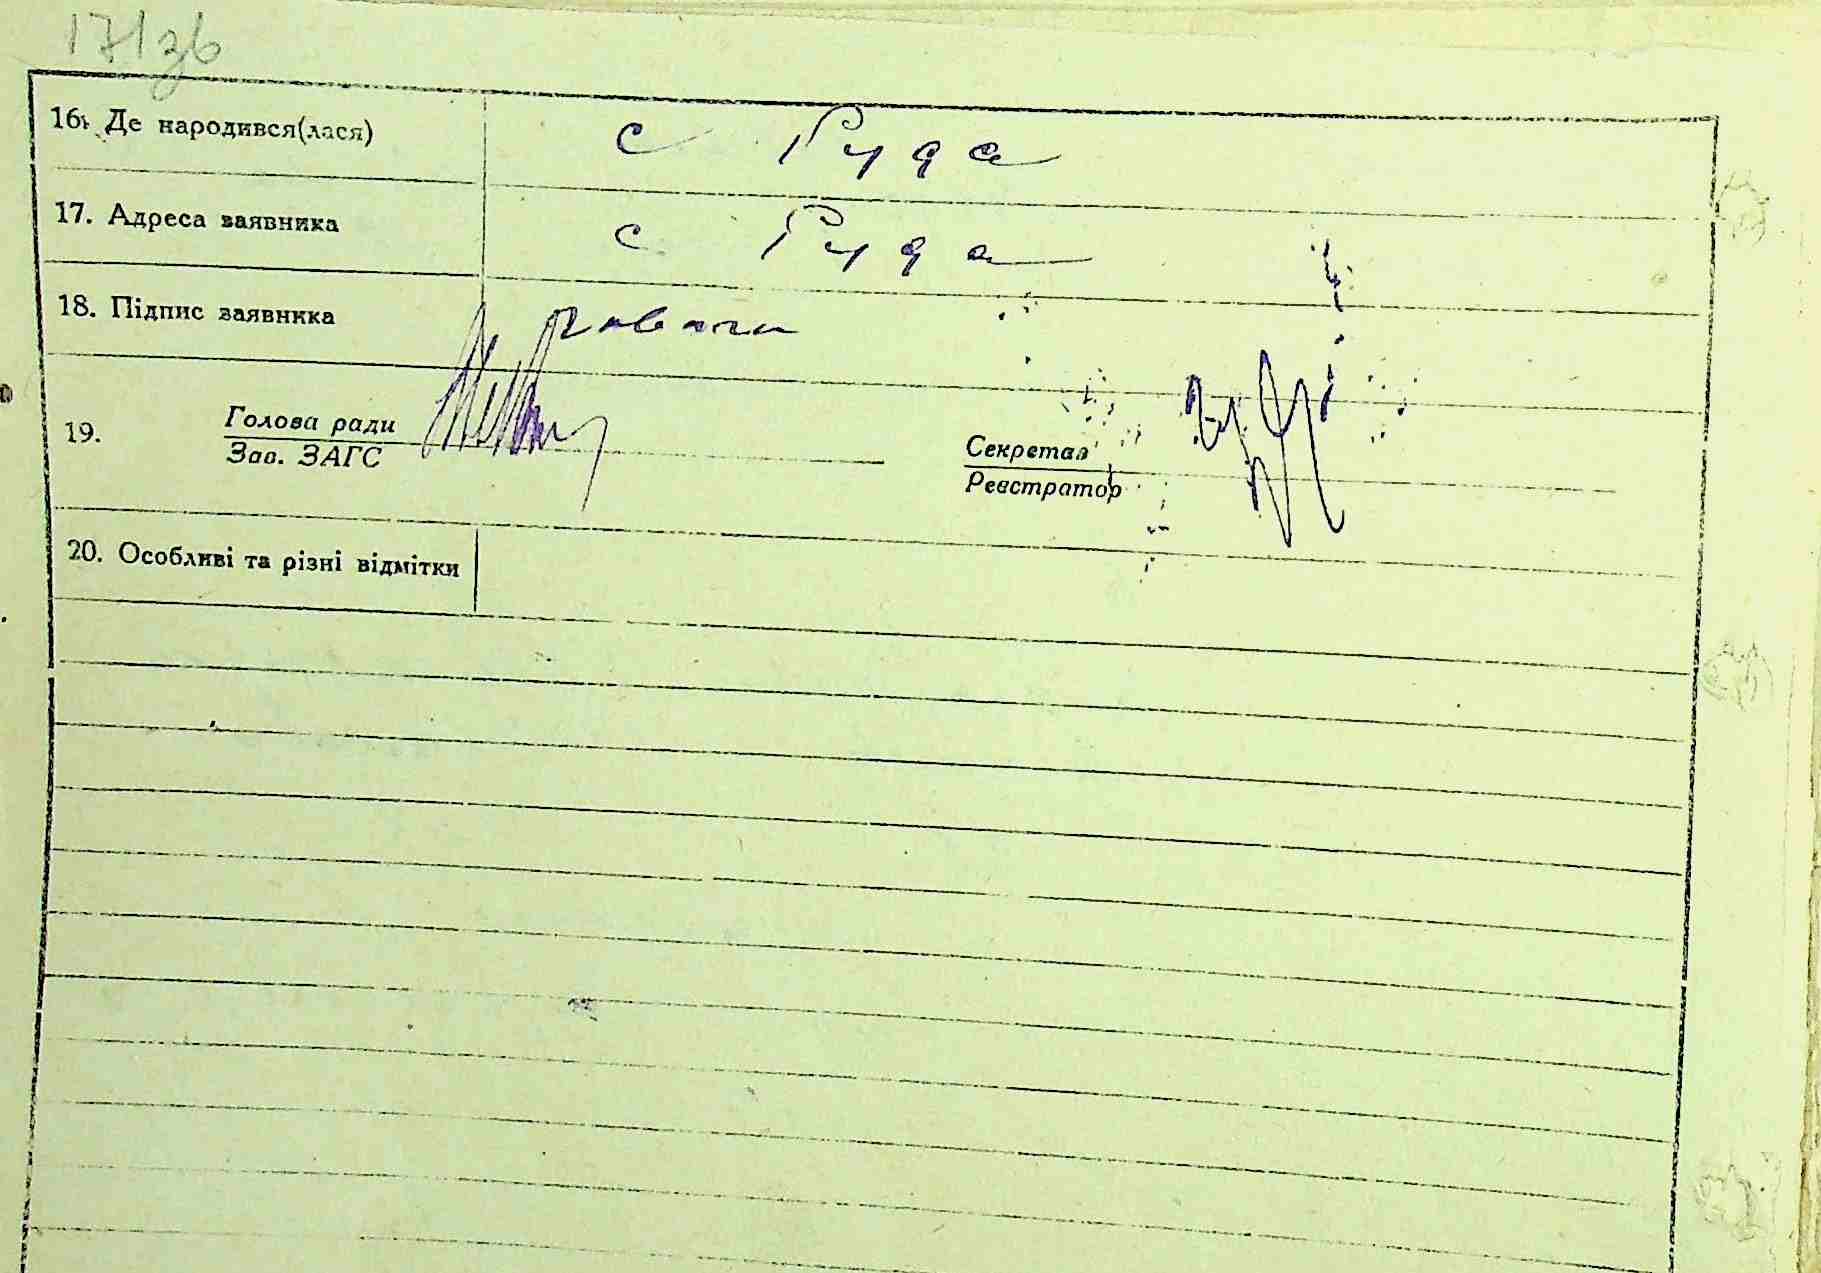 171зв
16. Де народився(лася) с Руда
17. Адреса заявника с Руда
18. Підпис заявника
19. Голова ради
Зав. ЗАГС
Секретар
Реєстратор
20. Особливі та різні відмітки